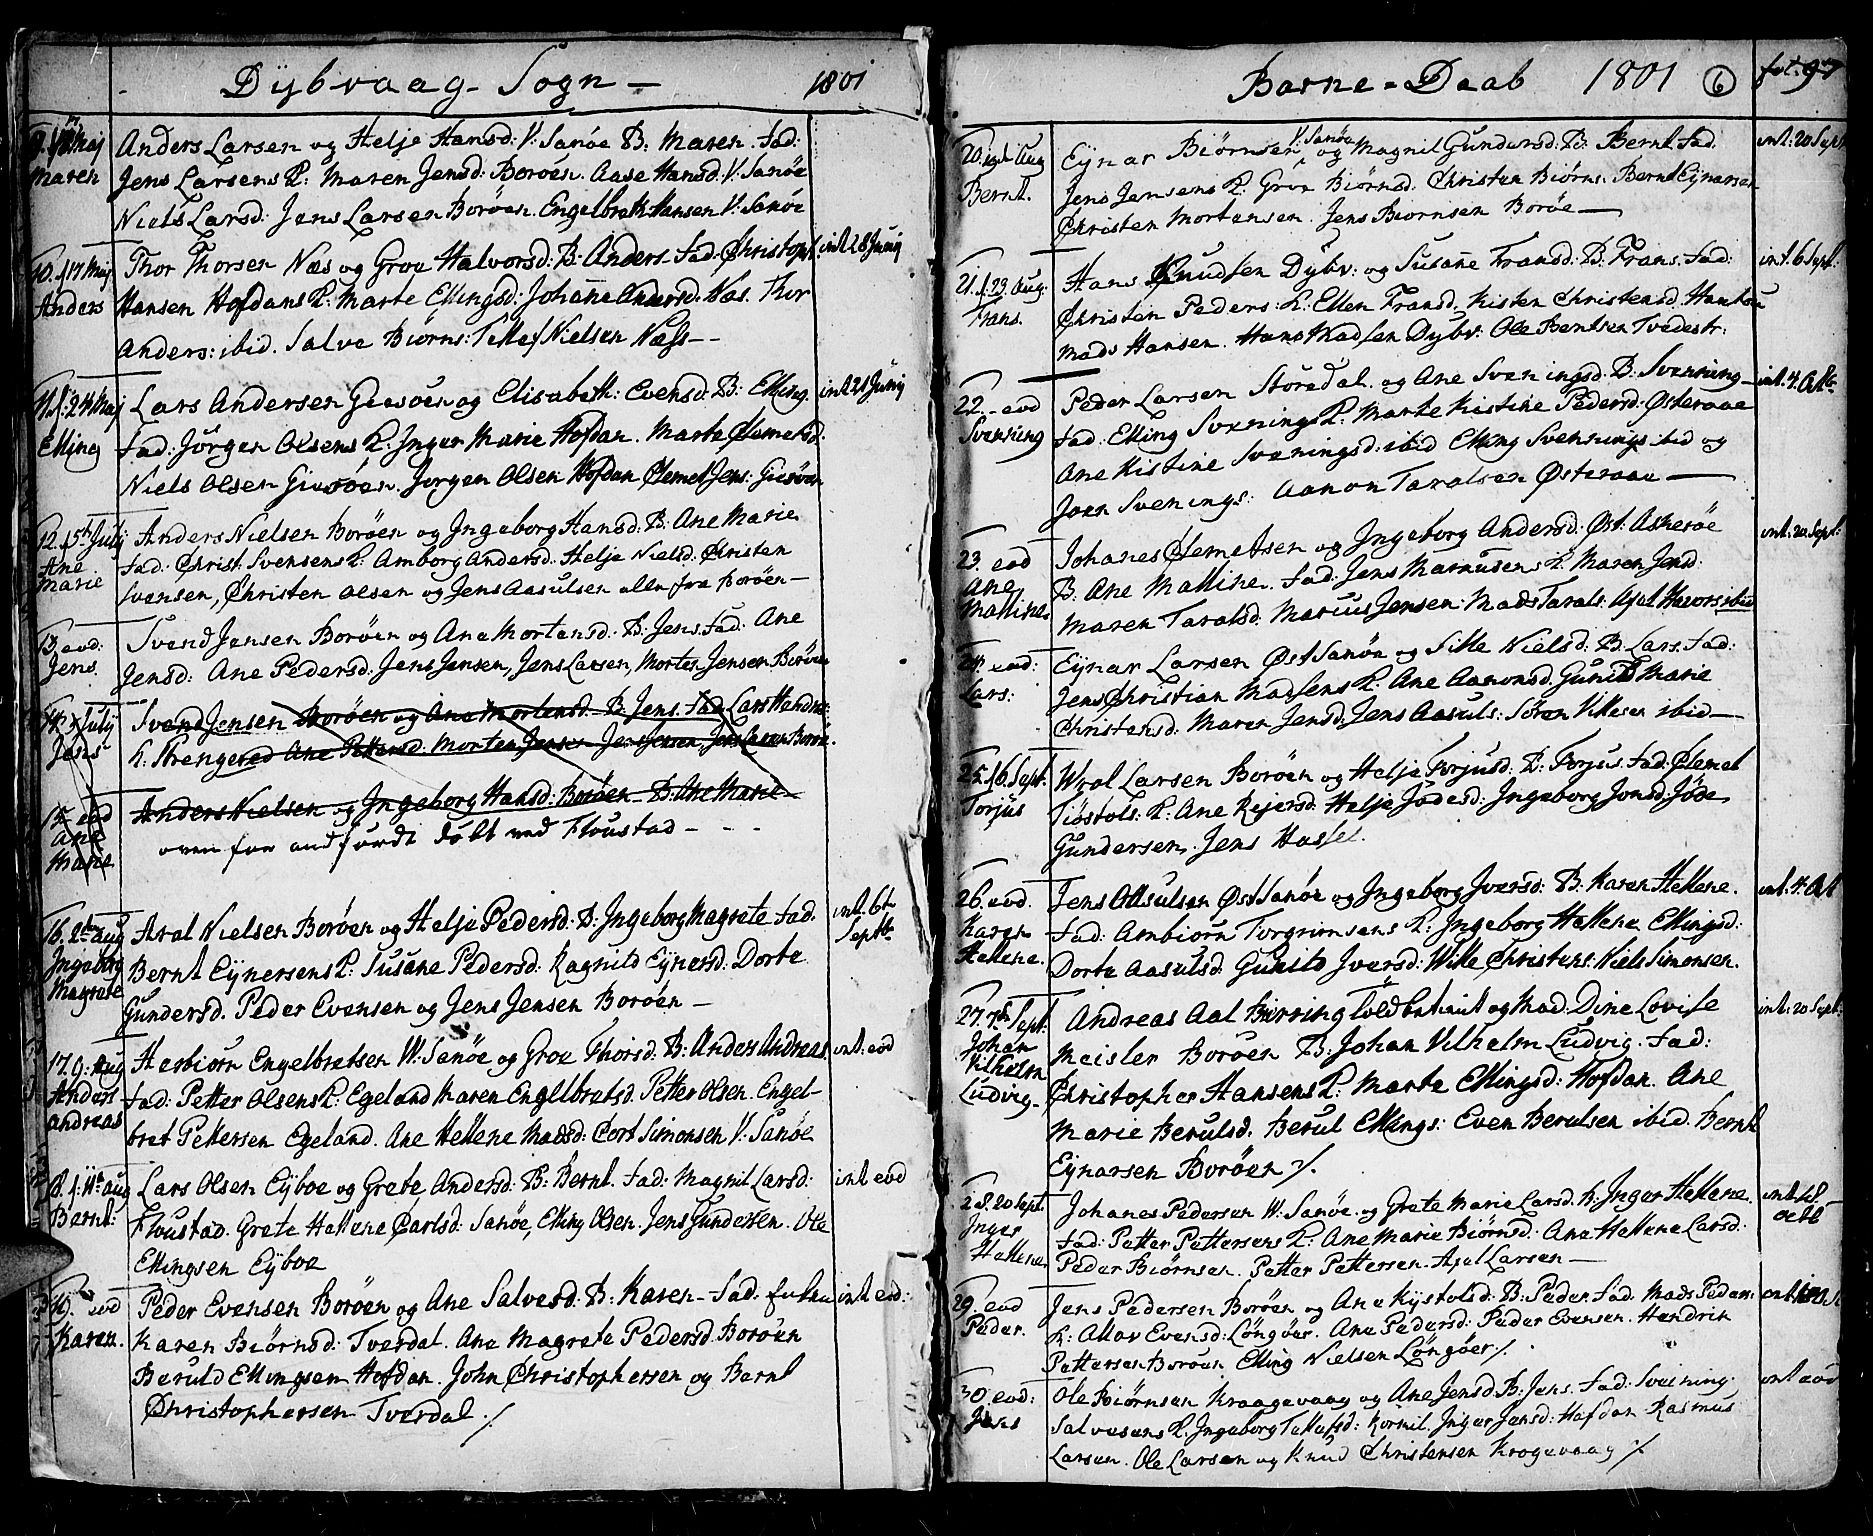 Dybvaag Sogn — 1801
9. Maj Anders Larsen og Helje Hansd: V: Sanöe B: Maren. Fad:
Maren Jens Larsens K: Maren Jensd: Boröen. Aase Hansd: V: Sanöe
Niels Larsd: Jens Larsen Boröen. Engelbrekt Hansen V: Sanöe
10. f 17 Maj Thor Thorsen Næs og Groe Halvorsd: B: Anders Fad: Christoph: int 28 Junij
Anders Hansen Hofdans K: Marte Ellingsd: Johane Næs. Thor
Anders: ibid. Salve Biörns: Tellef Nielsen Næss - -
11. f: 24 Maj Lars Andersen Giesöen og Elisabeth: Evensd: B: Elling int 21 Junij
Elling Fad: Jörgen Olsens K: Inger Marie Hofdan. Marte Clemetsd:
Niels Olsen Giesöen. Jorgen Olsen Hofdan Clemet Jens: Giesöen
12. f 5te July Anders Nielsen Boröen og Ingeborg Hansd: B: Ane Marie
Ane Marie Fad: Christ: Svensens K: Amborg Andersd: Helje Nielsd: Christen
Svensen, Christen Olsen og Jens Aasulsen alle fra Boröen —
13. eod: Svend Jensen Boröen og Ane Mortensd: B: Jens. Fad: Ane
Jens. Jensd: Ane Pedersd: Jens Jensen, Jens Larsen, Morten Jensen Boröen
14. 5 July Svend Jensen Boröen og Ane Mortensd: B: Jens. Fad: Lars
Jens K: Ane Pettersd: Morten Jensen Jens Jensen, Jens Larsen Borön.
15 eod Anders Nielsen og Ingeborg Hansd: Boröen — B: Ane Marie —
Ane Marie oven for döbt ved Floustad - - -
16. 2den Aug Aral Nielsen Boröen og Helje Pedersd: B: Ingeborg Magrete Fad. int 6te Septb
Ingeborg Magrete Bernt Eynersens K: Susane Pedersd: Ragnild Eynersd: Dorte
Gundersd. Peder Evensen og Jens Jensen Boröen —
17. 9: Aug Herbiörn Engelbretsen W: Sanöe og Groe Thorsd: B: Anders Andreas int: eod
Anders Andreas Fad: Petter Olsens K. Egeland Karen Engelbretsd: Petter Olsen. Engel-
bret Pettersen Egeland. Ane Hellene Madsd: Cort Simonsen V: Sanöe
18. f: Aug Lars Olsen Eyboe og Grete Andersd: B: Bernt. Fad: Magnil Larsd: int eod
Bernt: Floustad. Grete Hellene Carlsd: Sanöe, Elling Olsen. Jens Gundersen. Ole
Ellingsen Eyboe
eod Peder Evensen Boröen og Ane Salvesd: B: Karen — Fad. Enken int eod:
Karen. Karen Biörnsd: Tverdal. Ane Magrete Pedersd: Boröen
Beruld Ellingsen Hofdan. John Christophersen og Bernt
Christophersen Tverdal ./.
Barne-Daab 1801 6 fol. 97
20. Aug Eynar Biörnsen V: Sanöe og Magnil Gundersd: B: Bernt Fad. int: 20 Sept
Bernt. Jens Jensens K: Groe Biörnsd: Christen Biörns: Bernt Eynarsen
Christen Mortensen. Jens Biornsen Boröe —
21. f. 23 Aug. Hans Knudsen Dybv: og Susane Fransd: B: Frans. Fad: int. 6 Sept:
Frans. Christen Peders: K: Ellen Fransd: Kisten Christensd:
Mads Hansen. Hans Knudsen Dybv: Ole Berntsen Tvedestr:
22. eod Peder Larsen Storedal. og Ane Sveningsd: B: Svenning — int. 4. Octb
Svenning Fad: Elling Svenings K: Marte Kistine Pedersd: Österaae
Ane Kistine Sveningsd: ibid Elling Svennings ibid og
Joen Svenings: Aanon Taralsen Österaae —
23. eod Johanes Clemetsen og Ingeborg Andersd: Öst: Askeröe int: 20 Sept:
Ane Malline B: Ane Malline. Fad: Jens Marcusens K. Maren Jensd:
Maren Taralsd: Marcus Jensen: Mads Tarals: Axel Havors ibid
24. eod: Eynar Larsen Öst Sanöe og Sille Nielsd: B: Lars. Fad:
Lars: Jens Christian Madsens K: Ane Aanonsd. Gunild Marie
Christensd. Maren Jensd: Jens Aasuls: Sören Villesen ibid —
25. f 6 Sept: Wral Larsen Boröen og Helje Torjusd: B: Torjus. Fad: Clemet
Torjus Tiöstols: K: Ane Rejersd: Helje Jödesd: Ingeborg Jonsd: Jöde
Gundersen. Jens Hassel.
26. eod. Jens Assulsen Öst Sanöe og Ingeborg Iversd: B: Karen Hellene. int. 4. Oct
Karen Hellene. Fad: Ambiörn Torgrimsens K: Ingeborg Hellene Ellingsd:
Dorte Aasulsd. Gunild Iversd: Wille Christens: Niels Simonsen.
27. 7de Sept: Andreas Aal Birring Toldbetient og Mad: Dine Lovise int: 20 Sept:
Johan Vilhelm Ludvig Meisler Boröen B: Johan Vilhelm Ludvig. Fad:
Christopher Hansens K: Marte Ellingsd: Hofdan. Ane
Marie Berulsd. Berul Ellings: Even Berulsen ibid. Bernt
Eynarsen Boröen ./.
28. 20 Sept. Johanes Pedersen W. Sanöe. og Grete Marie Larsd. B: Inger Hellene. int octb
Inger Hellene Fad: Petter Pettersens K: Ane Marie Biörnsd: Ane Hellene Larsd:
Peder Biörnsen. Petter Pettersen. Axel Larsen —
29. eod Jens Pedersen Boröen og Ane Kystolsd: B: Peder Fad. Mads Peders:
Peder. K: Allov Evensd: Löngöer. Ane Pedersd: Peder Evensen. Hendrik
Pettersen Boröen Elling Nielsen Löngöer ./.
30. eod: Ole Biörnsen Kraagevaag og Ane Jensd B: Jens. Fad: Svening int eod
Jens Salvesens K. Ingeborg Tellefsd: Inger Jensd: Hofdan Rasmus
Larsen. Ole Larsen og Knud Christensen Krogevaag ./.